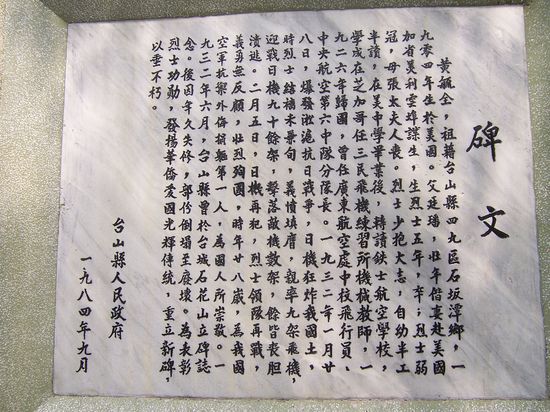 碑文
黃毓全，祖籍台山縣四九區石坂潭鄉，一
九零四年生於美國。父延璠，壯年偕妻赴美國
加省美利雲埠謀生，生烈士五年，卒；烈士弱
冠，母張太夫人喪。烈士少抱大志，自幼半工
半讀，在美中學畢業後，轉讀鉄士航空學校，
學成在芝加哥任三民飛機練習所機械教師，一
九二六年歸國，曾任廣東航空處中校飛行員、
中央航空第六中隊分隊長。一九三二年一月廿
八日，爆發淞滬抗日戰爭，日機狂炸我國土，
時烈士結褵未景旬，義憤填膺，親率九架飛機，
迎戰日機九十餘架，擊落敵機數架，餘皆喪胆
潰逃。二月五日，日機再犯，烈士領隊再戰，
義勇無反顧，壯烈殉國，時年廿八歲，為我國
空軍抗禦外侮捐軀第一人，為國人所崇敬。一
九三二年六月，台山縣曾於台城石花山立碑誌
念。後因年久失修，部份倒塌至廢壞。為表彰
烈士功勳，發揚華僑愛國光輝傳統，重立新碑，
以垂不朽。
台山縣人民政府
一九八四年九月